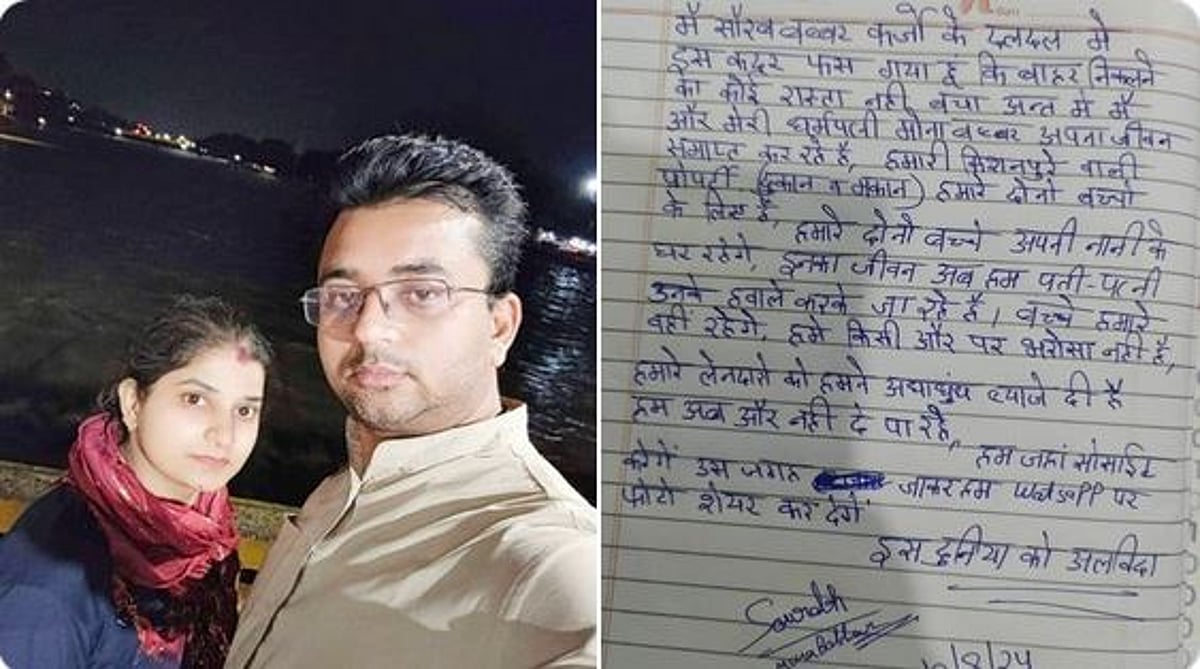 मैं सौरव बब्बर कर्जो के दलदल मे
इस कदर फस गया हूं कि बाहर निकलने
का कोई रास्ता नही बचा अन्त मे मैं
और मेरी धर्मपत्नी मोना बब्बर अपना जीवन
समाप्त कर रहे है, हमारी किशनपुरे वाली
प्रोपर्टी (दुकान व मकान) हमारे दोनो बच्चो
के लिए है, हमारे दोनो बच्चे अपनी नानी के
घर रहेगे, इनका जीवन अब हम पती-पत्नी
उनके हवाले करके जा रहे है। बच्चे हमारे
वही रहेगे, हमे किसी और पर भरोसा नही है,
हमारे लेनदारो को हमने अंधाधुंध ब्याजे दी है
हम अब और नही दे पा रहे,
हम जहां सोसाईट
करेगें उस जगह जाकर हम पर
फोटो शेयर कर देगें
इस दुनिया को अलविदा
Sourabh
/8/24